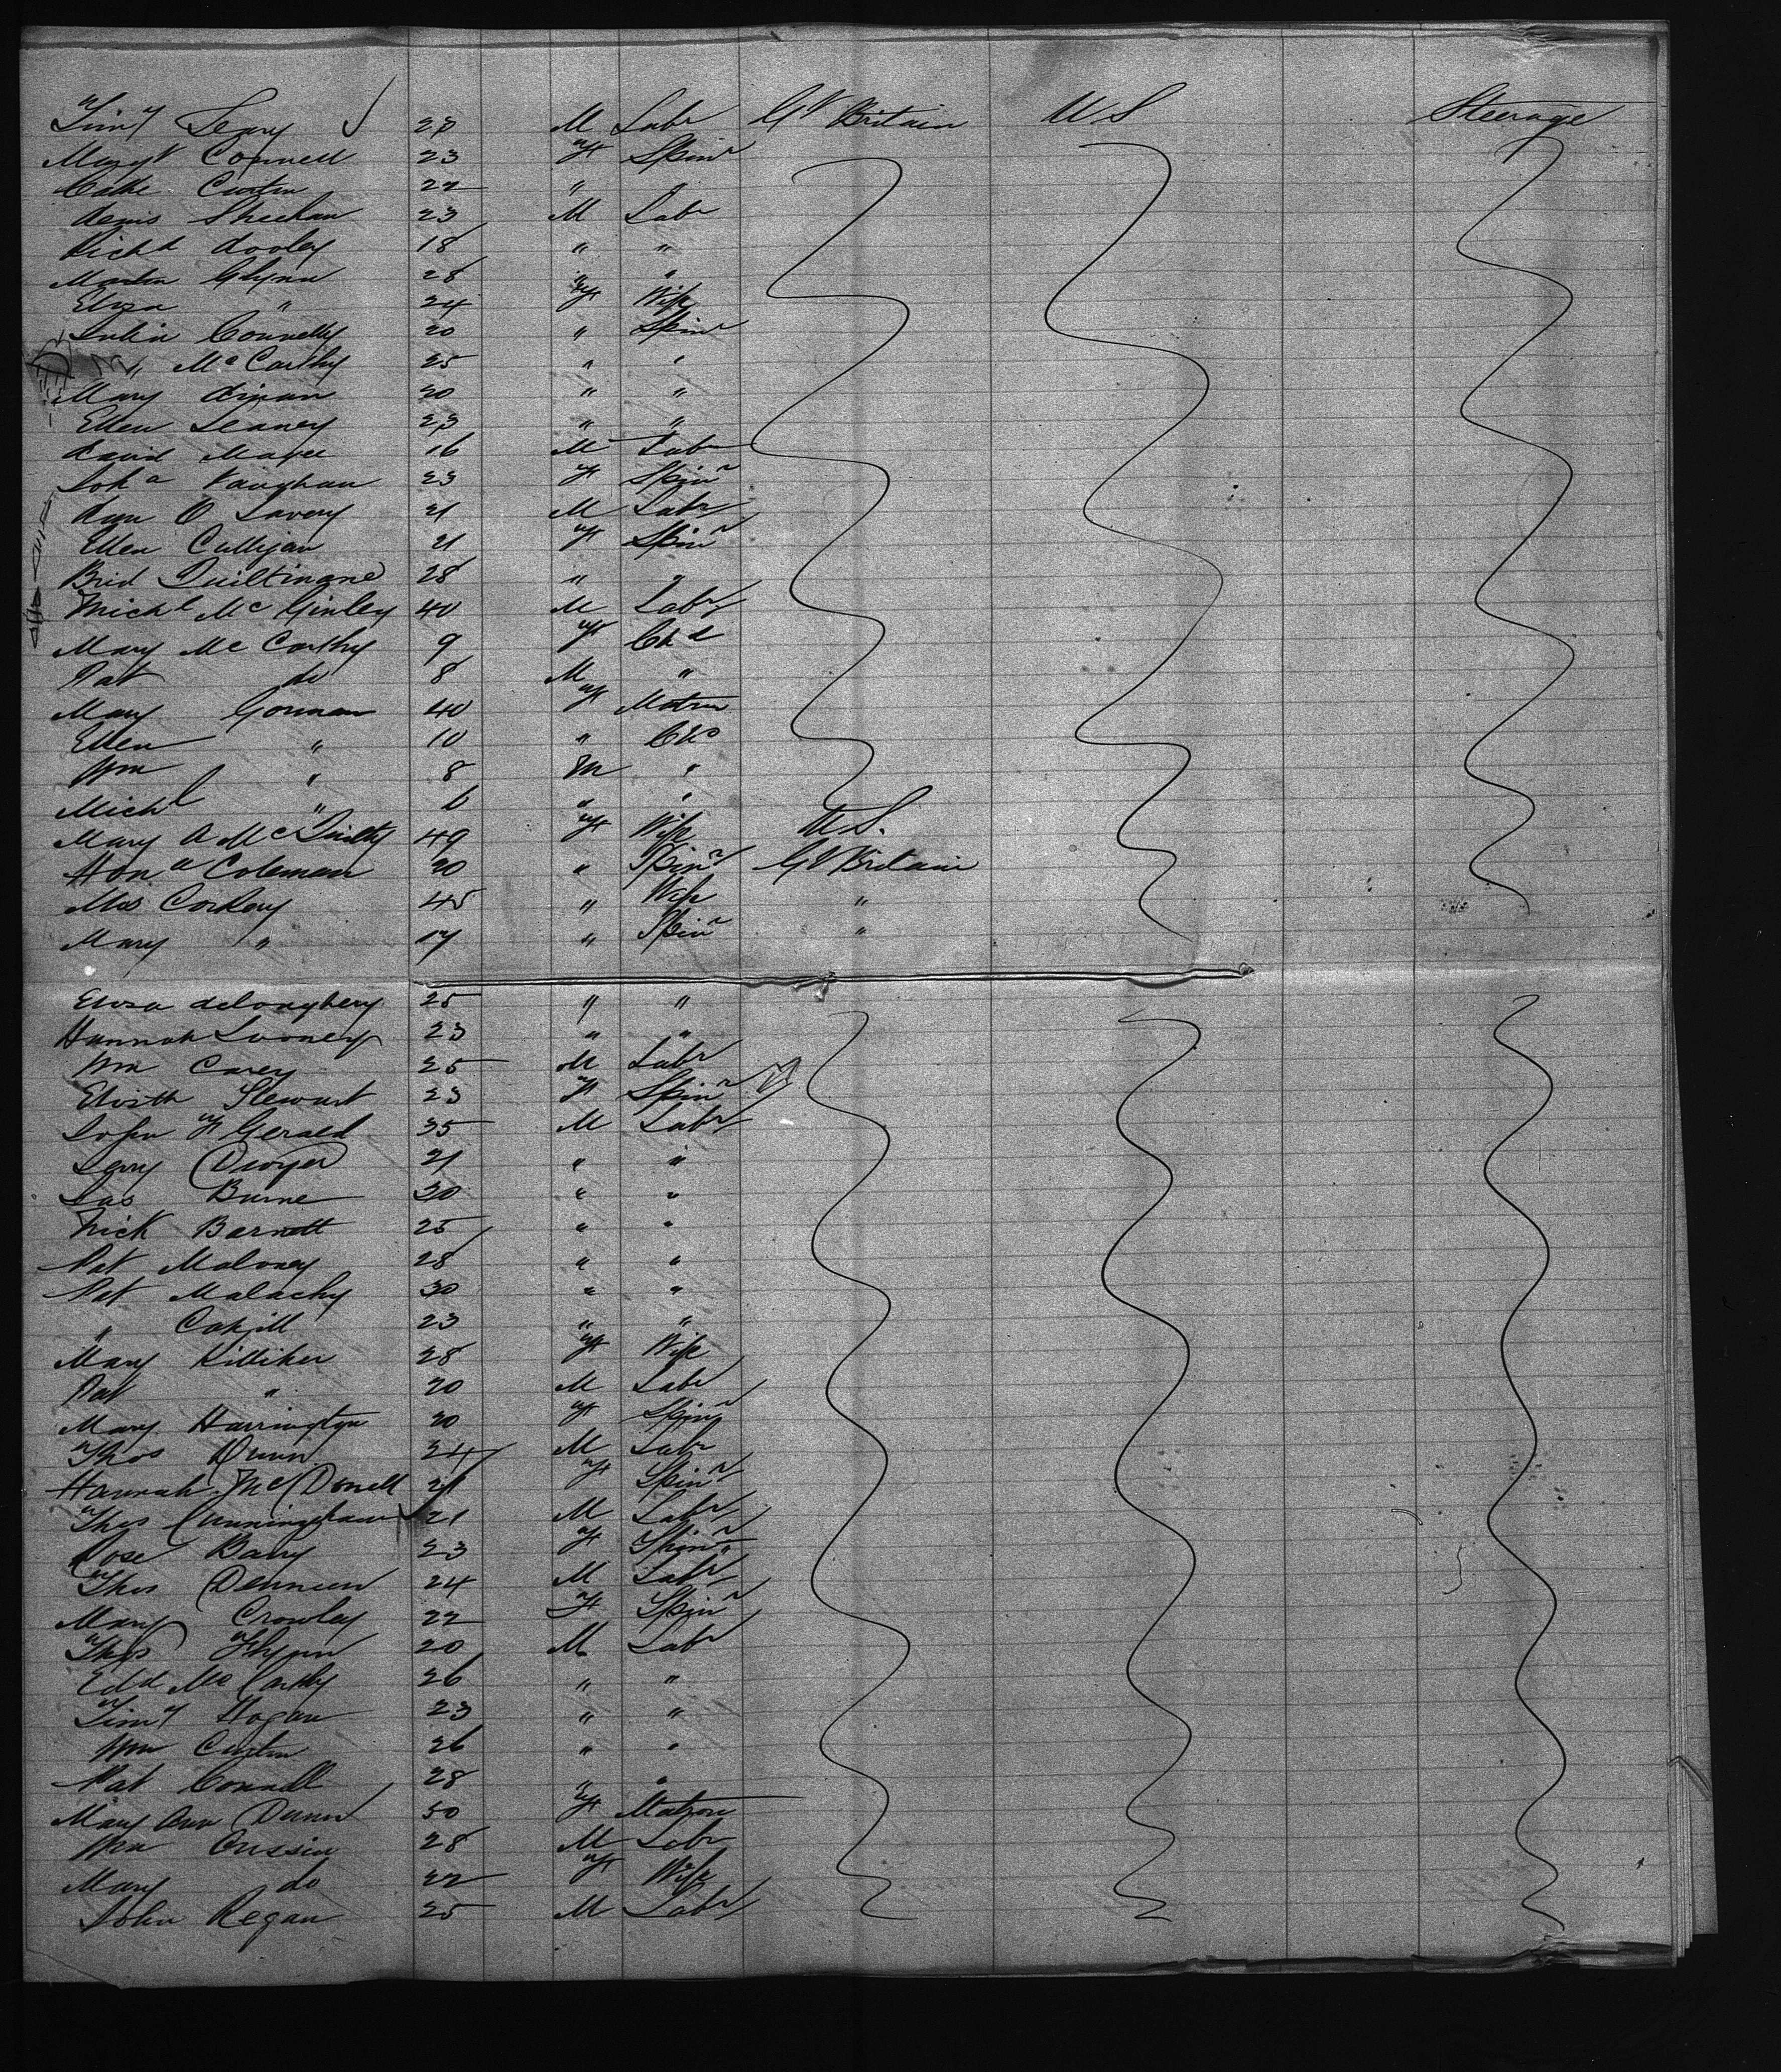 Timy Leary 23 M Labr Gt Britain U S Steerage
Margt Connell 23 F Spinr
Cathe Curtin 22 "
Denis Sheehan 23 M Labr
Richd Dooley 18 " "
Martin Glynn 28 " "
Eliza " 24 F Wife
Julia Connelly 20 " Spinr
" McCarthy 25 " "
Mary Dinan 20 " "
Ellen Leaney 23 " "
David Magee 16 M Labr
Joha Vaughan 23 F Spinr
O Lavery 21 M Labr
Ellen Culligan 21 F Spinr
Brid Quiltinane 28 " "
Michl McGinley 40 M Labr
Mary McCarthy 9 F Chd
Pat do 8 M "
Mary Gorman 40 F Matrn
Ellen " 10 " Chd
Wm " 8 M "
Michl " 6 " "
Mary A McQuilty 49 F Wife U S.
Hona Coleman 20 " Spinr Gt Britain
Mrs Corkery 45 " Wife "
Mary " 17 " Spinr "
Eliza deLoughery 25 " "
Hannah Looney 23 " "
Wm Carey 25 M Labr
Elizth Stewart 23 F Spinr
John F Gerald 35 M Labr
Jerry Dwyer 21 " "
Jas Burne 30 " "
Mick Barnett 25 " "
Pat Maloney 28 " "
Pat Malachy 30 " "
" Cahill 23 " "
Mary Killiker 28 F Wife
Pat " 20 M Labr
Mary Harrington 20 F Spinr
Thos Dunn 24 M Labr
Hannah McDonell 21 F Spinr
Thos Cunningham 21 M Labr
Rose Barry 23 F Spinr
Thos Denneen 24 M Labr
Mary Crowley 22 F Spinr
Thos Flynn 20 M Labr
Edd McCarthy 26 " "
Timy Hogan 23 " "
Wm Curtin 26 " "
Pat Connell 28 " "
Mary Ann Dunn 50 F Matron
Wm Cussin 28 M Labr
Mary do 22 F Wife
John Regan 25 M Labr